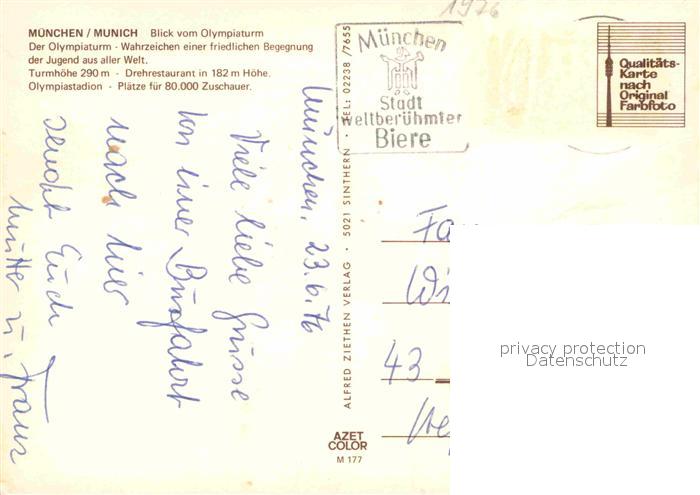 MÜNCHEN / MUNICH Blick vom Olympiaturm
Der Olympiaturm - Wahrzeichen einer friedlichen Begegnung
der Jugend aus aller Welt.
Turmhöhe 290 m - Drehrestaurant in 182 m Höhe.
Olympiastadion - Plätze für 80.000 Zuschauer.
München, 23.6.76
Viele liebe Grüsse
von einer Busfahrt
nach hier
sendet Euch
Mutter u. Franz
ALFRED ZIETHEN VERLAG · 5021 SINTHERN · TEL: 02238 /7655
AZET
COLOR
M 177
1976
München
Stadt
weltberühmter
Biere
Qualitäts-
Karte
nach
Original
Farbfoto
Fa
Wi
43
privacy protection
Datenschutz